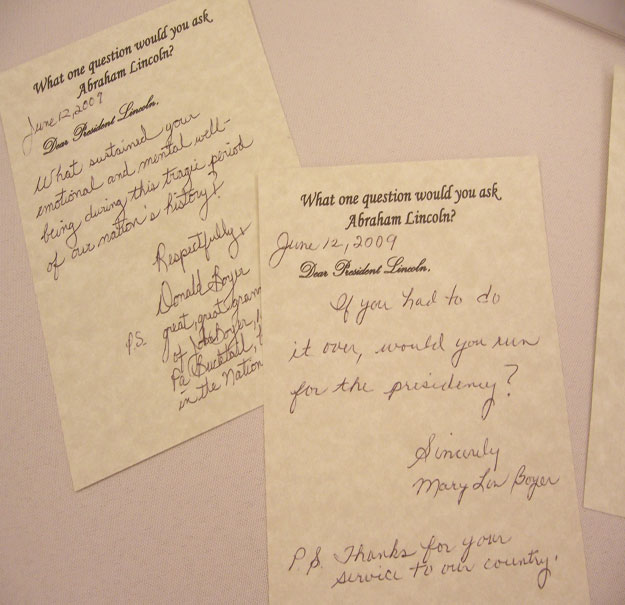 What one question would you ask
Abraham Lincoln?
June 12, 2009
Dear President Lincoln,
What sustained your
emotional and mental well-
being during this tragic period
of our nation's history?
Respectfully,
Donald Boyer
P.S. great, great
of John Boyer,
Pa Bucktail,
in the Nation
What one question would you ask
Abraham Lincoln?
June 12, 2009
Dear President Lincoln,
If you had to do
it over, would you run
for the presidency?
Sincerely
Mary Lou Boyer
P.S. Thanks for your
service to our country.